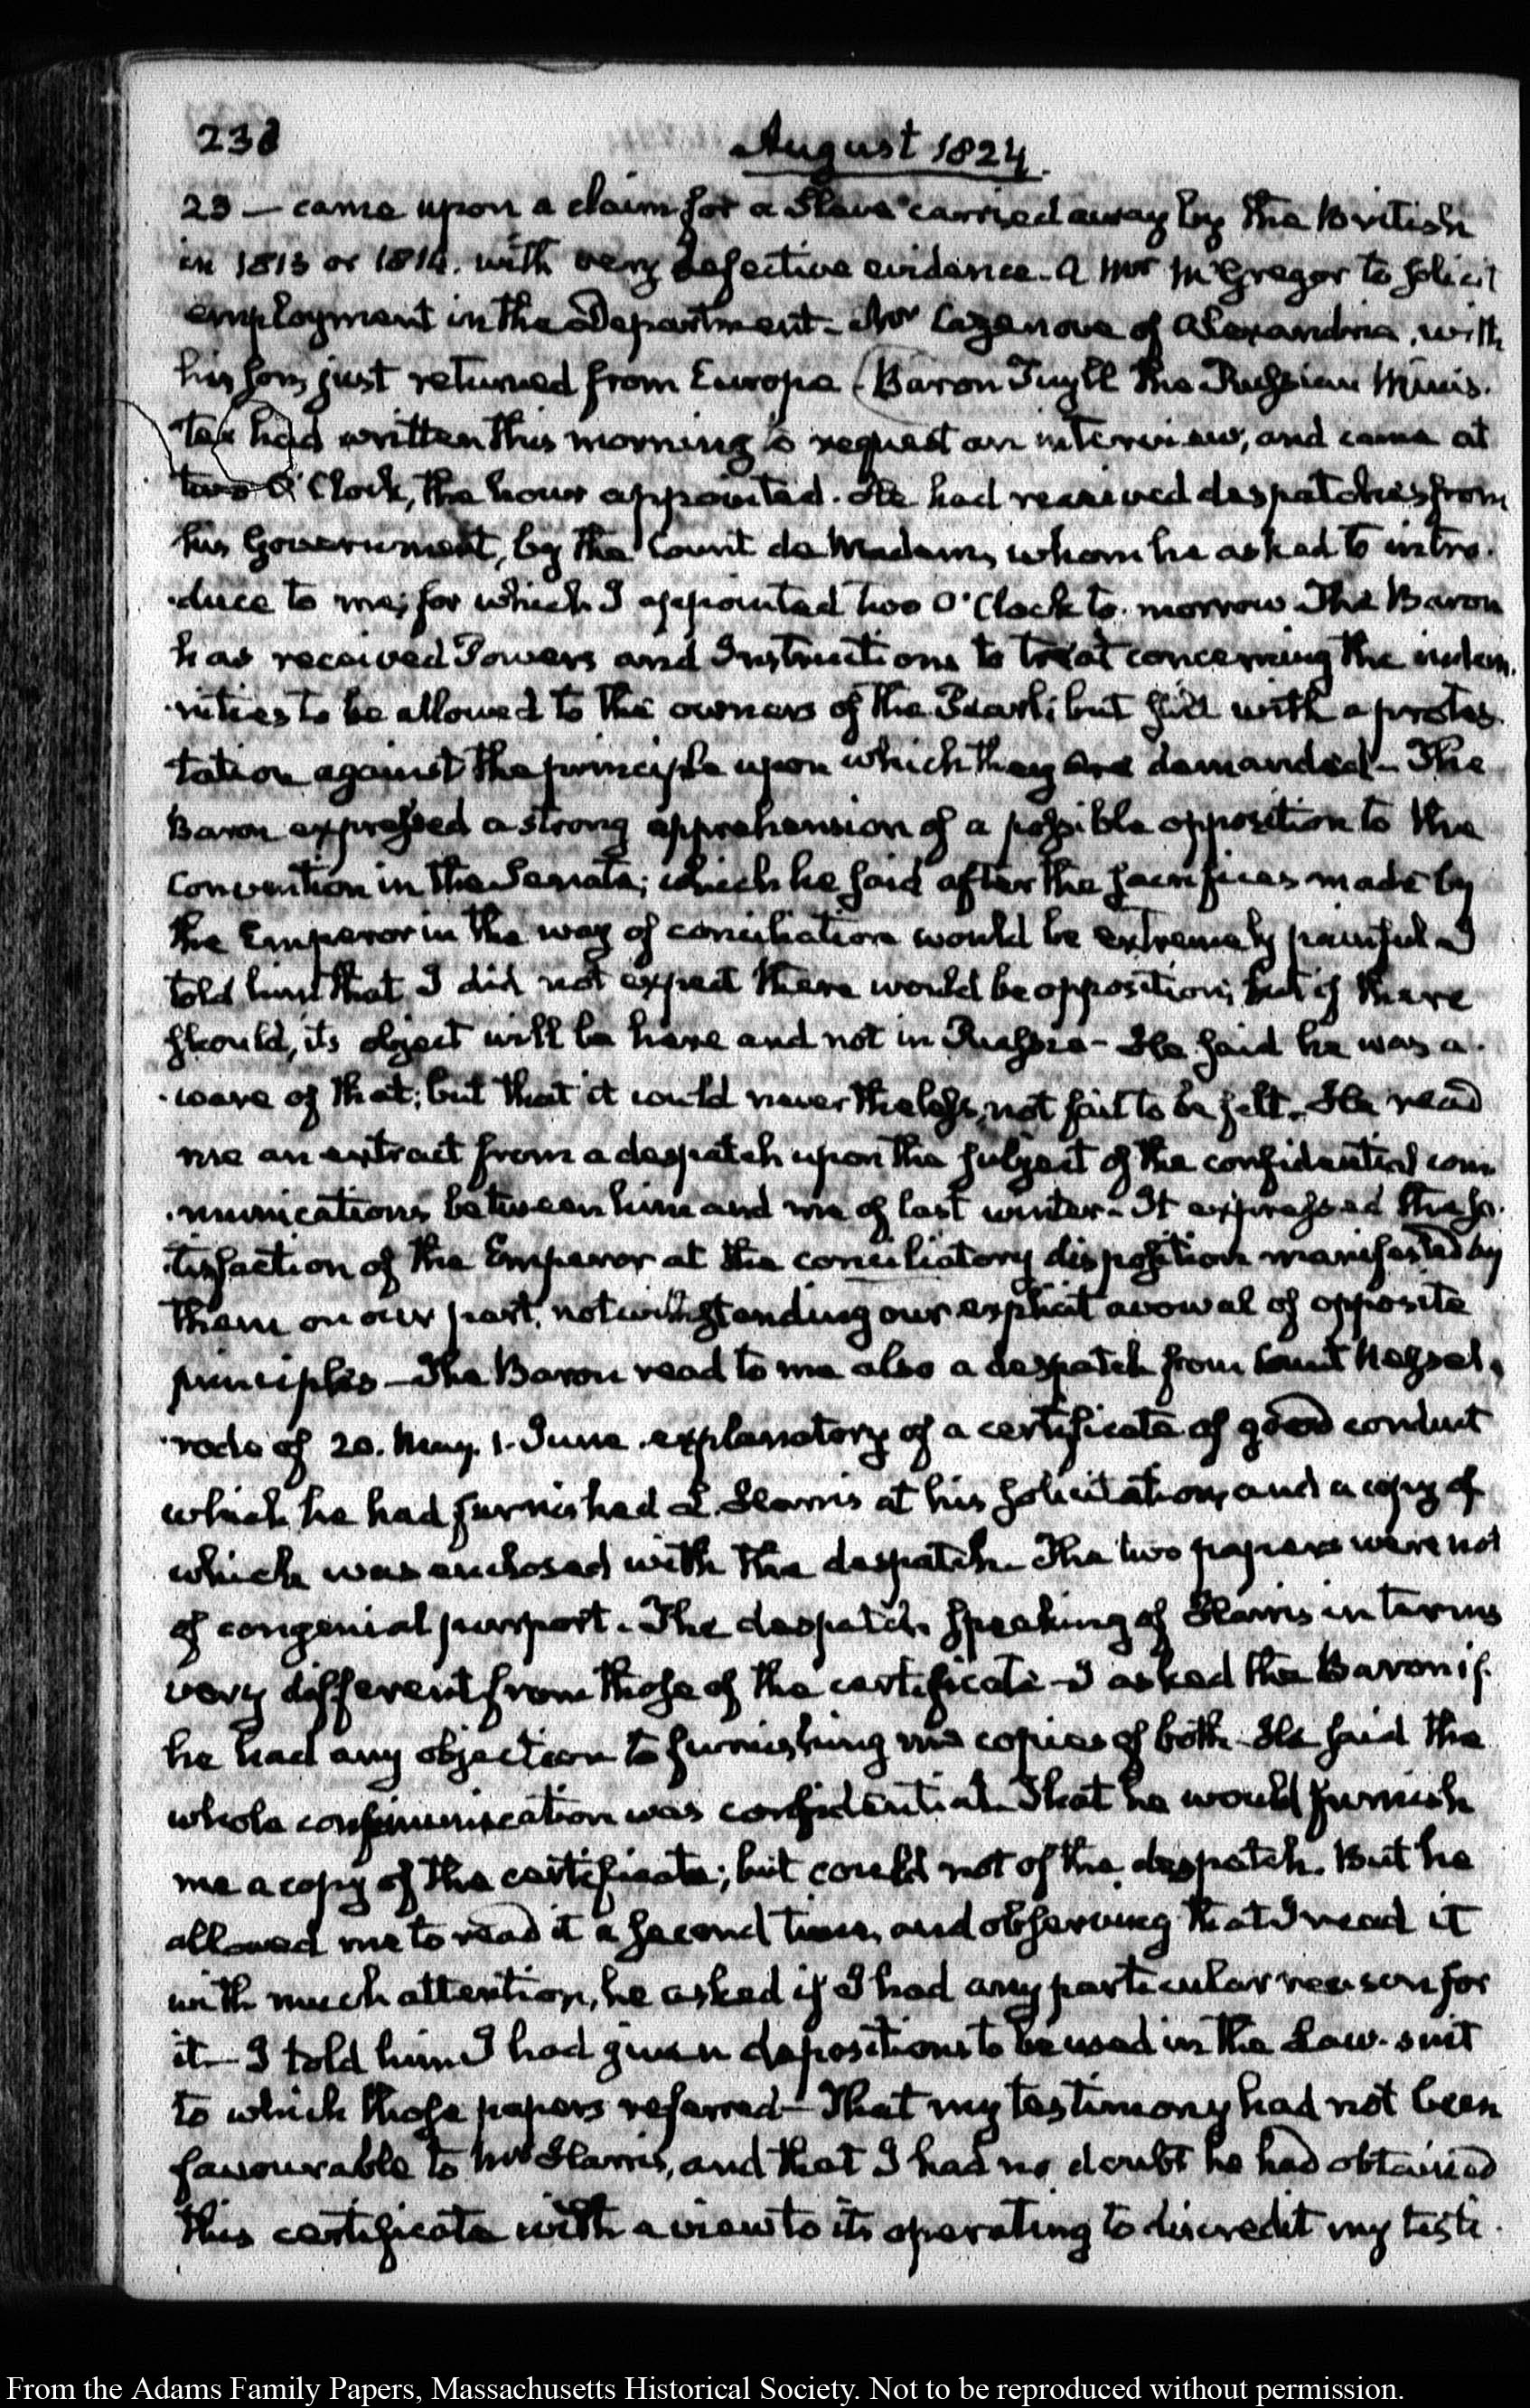 238
August 1824.
23 — came upon a claim for a Slave carried away by the British
in 1813 or 1814. with very defective evidence. A Mr McGregor to solicit
employment in the Department. Mr Cazenove of Alexandria, with
his son, just returned from Europe (Baron Tuyll the Russian Minis-
ter had written this morning to request an interview, and came at
two O'Clock, the hour appointed. He had received despatches from
his Government, by the Count de Medem, whom he asked to intro-
duce to me; for which I appointed two O'Clock to-morrow The Baron
has received Powers and Instructions to treat concerning the indem-
nities to be allowed to the owners of the Pearl; but still with a protes-
tation against the principle upon which they are demanded — The
Baron expressed a strong apprehension of a possible opposition to the
Convention in the Senate; which he said after the sacrifices made by
the Emperor in the way of conciliation would be extremely painful — I
told him that I did not expect there would be opposition; but if there
should, its object will be here and not in Russia — He said he was a-
ware of that; but that it would nevertheless, not fail to be felt. He read
me an extract from a despatch upon the subject of the confidential com-
munications between him and me of last winter. It expressed the sa-
tisfaction of the Emperor at the conciliatory disposition manifested by
them on our part, notwithstanding our explicit avowal of opposite
principles — The Baron read to me also a despatch from Count Nessel-
rode of 20. May. 1. June. explanatory of a certificate of good conduct
which he had furnished L. Harris at his solicitation, and a copy of
which was enclosed with the despatch. The two papers were not
of congenial purport. The despatch speaking of Harris in terms
very different from those of the certificate — I asked the Baron if
he had any objection to furnishing me copies of both. He said the
whole communication was confidential. That he would furnish
me a copy of the certificate; but could not of the despatch. But he
allowed me to read it a second time, and observing that I read it
with much attention, he asked if I had any particular reason for
it — I told him I had given depositions to be used in the Law-suit
to which those papers referred — That my testimony had not been
favourable to Mr Harris, and that I had no doubt he had obtained
this certificate with a view to its operating to discredit my testi-
From the Adams Family Papers, Massachusetts Historical Society. Not to be reproduced without permission.